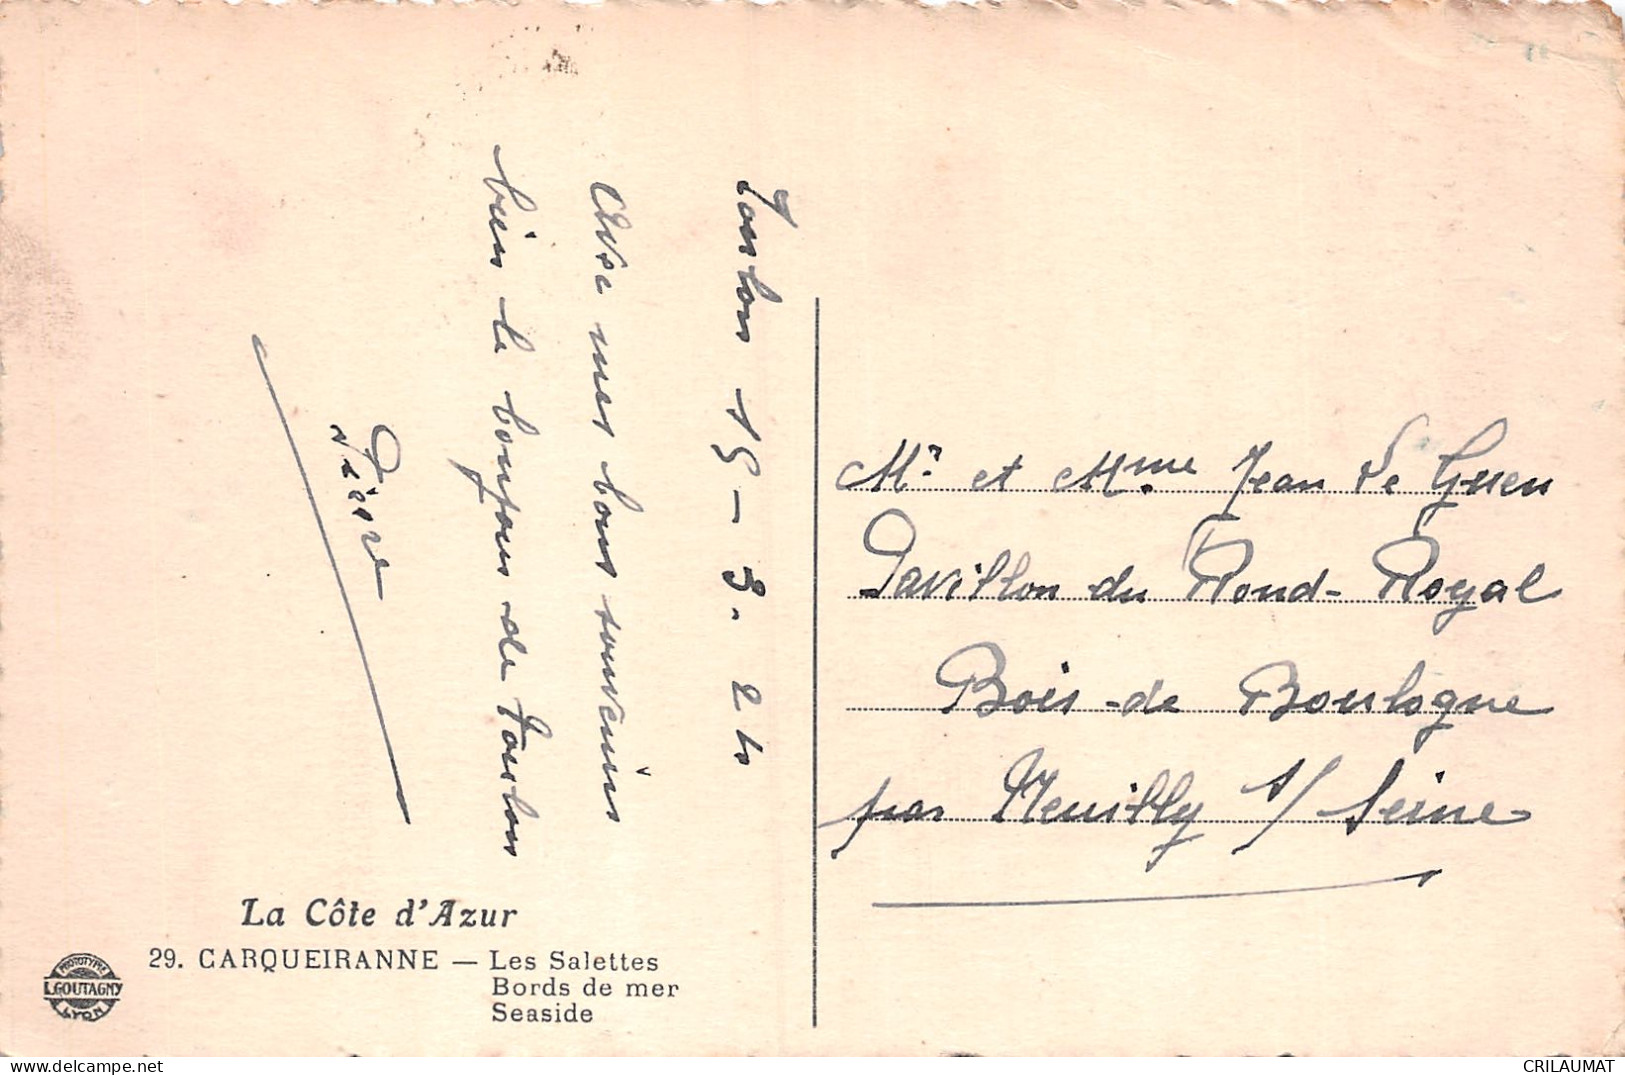 Toulon 15-3. 
Avec mes bons souvenirs
bien le bonjour de Toulon
Pierre
Mr et Mme Jean Le Guen
Pavillon du Rond-Royal
Bois-de Boulogne
par Neuilly s/ Seine
La Côte d'Azur
29. CARQUEIRANNE — Les Salettes
Bords de mer
Seaside
PROTOTYPE
L.GOUTAGNY
LYON
www.delcampe.net
CRILAUMAT